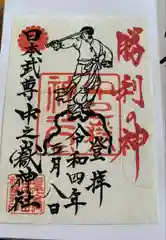 勝利の神
登拝
令和四年
月八日
日本武尊 中之嶽神社